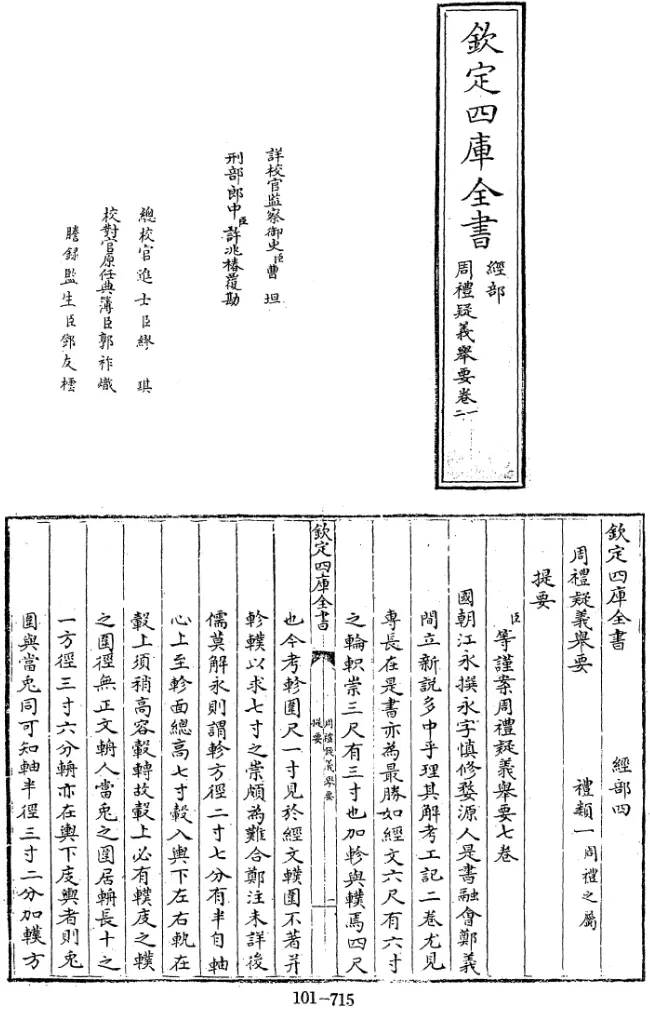 欽定四庫全書
經部
周禮疑義舉要卷一二
詳校官監察御史臣曹坦
刑部郎中臣許兆椿覆勘
總校官進士臣繆琪
校對官原任典簿臣郭祚熾
謄錄監生臣鄧友櫺
欽定四庫全書 經部四
周禮疑義舉要 禮類一周禮之屬
提要
臣等謹案周禮疑義舉要七卷
國朝江永撰永字慎修婺源人是書融會鄭義
間立新説多中乎理其解考工記二卷尤見
專長在是書亦為最勝如經文六尺有六寸
之輪軹崇三尺有三寸也加軫與轐焉四尺
欽定四庫全書
周禮疑義舉要
提要
一
也今考軫圍尺一寸見於經文轐圍不著并
軫轐以求七寸之崇頗為難合鄭注未詳後
儒莫解永則謂軫方徑二寸七分有半自軸
心上至軫面總高七寸轂入輿下左右軌在
轂上須稍高容轂轉故轂上必有轐庋之轐
之圍徑無正文輈人當兎之圍居輈長十之
一方徑三寸六分輈亦在輿下庋輿者則兎
圍與當兎同可知軸半徑三寸二分加轐方
101-715